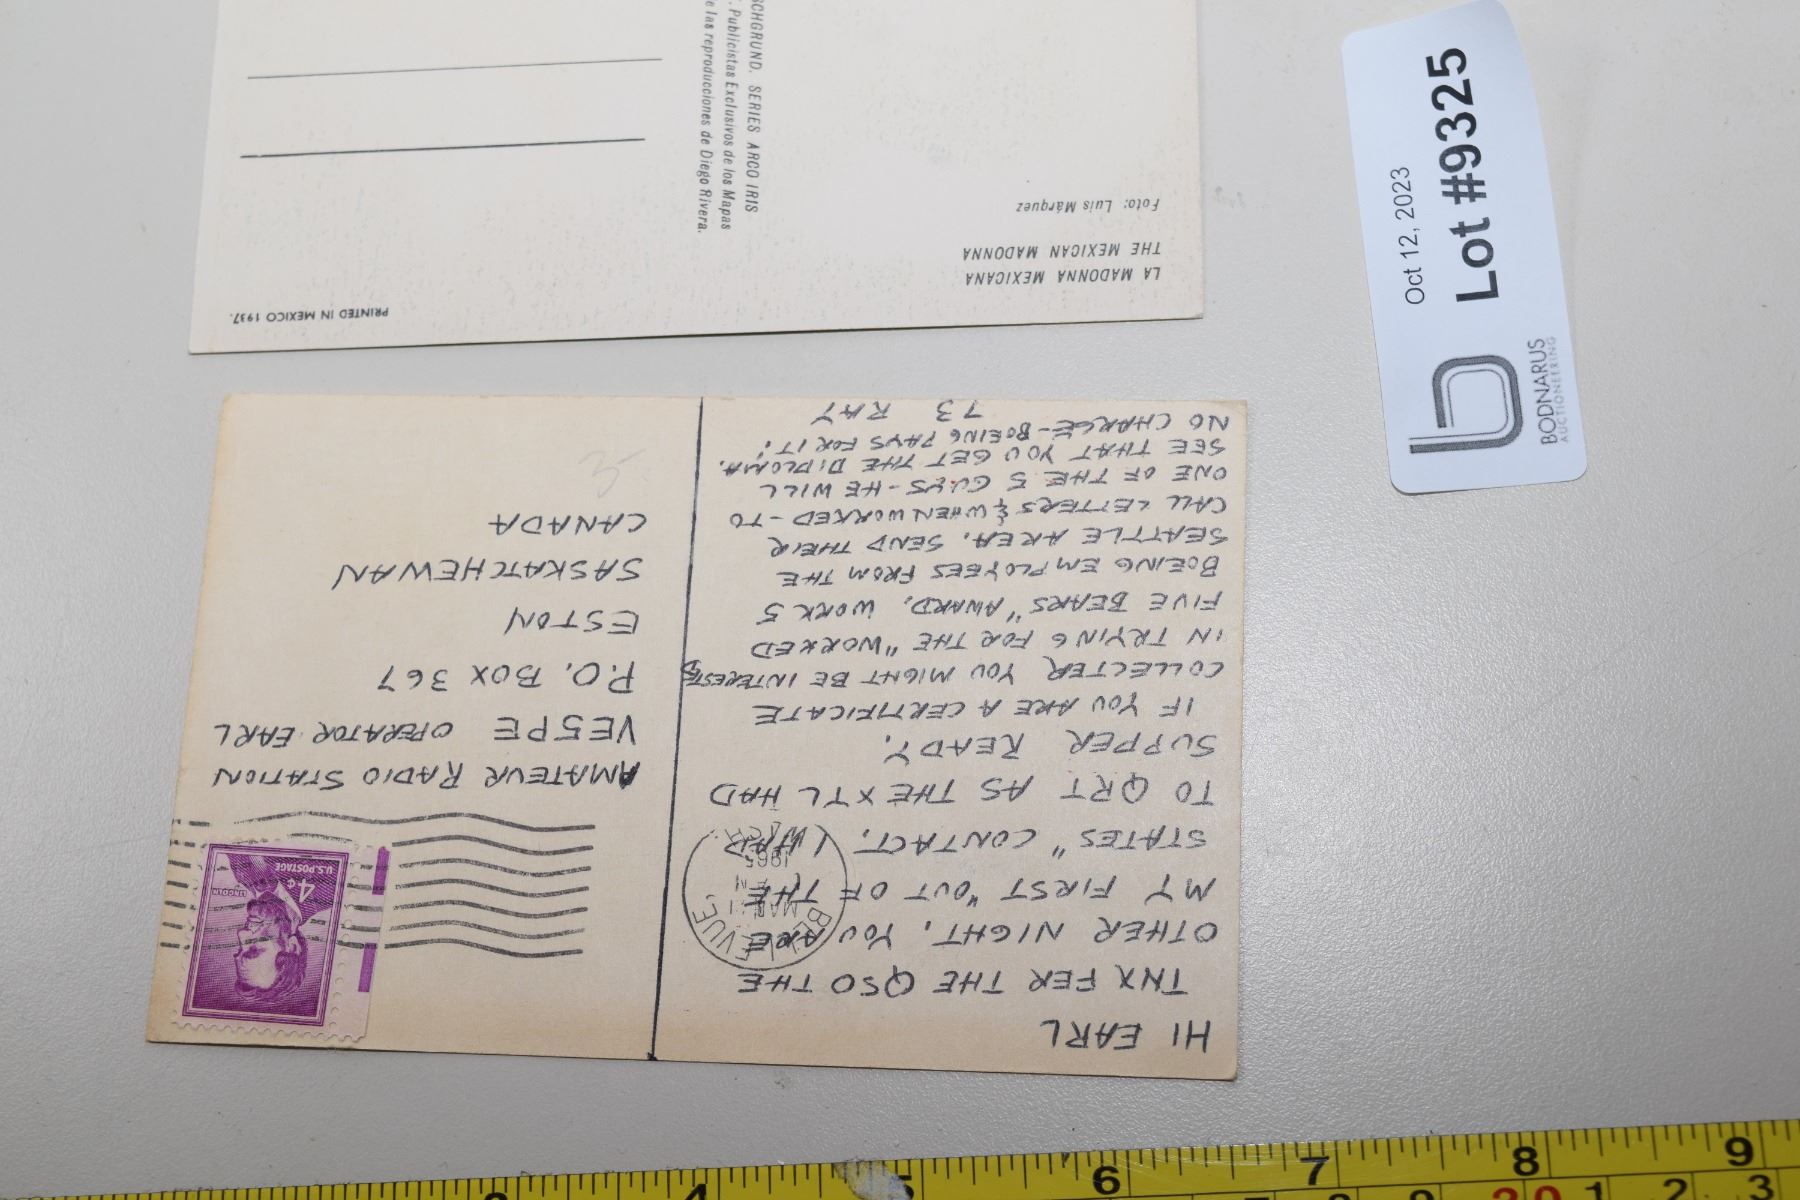 SCHGRUND. SERIES ARCO IRIS
. Publicistas Exclusivos de los Mapas
e las reproducciones de Diego Rivera.
Foto: Luis Márquez
THE MEXICAN MADONNA
LA MADONNA MEXICANA
PRINTED IN MEXICO 1937.
Oct 12, 2023
Lot #9325
BODNARUS
AUCTIONEERING
HI EARL
TNX FER THE QSO THE
OTHER NIGHT. YOU ARE
MY FIRST "OUT OF THE
STATES" CONTACT. I HAD
TO QRT AS THE XYL HAD
SUPPER READY.
IF YOU ARE A CERTIFICATE
COLLECTER YOU MIGHT BE INTERESTED
IN TRYING FOR THE "WORKED
FIVE BEARS" AWARD. WORK 5
BOEING EMPLOYEES FROM THE
SEATTLE AREA. SEND THEIR
CALL LETTERS & WHEN WORKED - TO
ONE OF THE 5 GUYS - HE WILL
SEE THAT YOU GET THE DIPLOMA.
NO CHARGE - BOEING PAYS FOR IT!
73 RAY
BELLEVUE,
MAR
1965
LINCOLN
4¢
U.S. POSTAGE
AMATEUR RADIO STATION
VE5PE OPERATOR EARL
P.O. BOX 367
ESTON
SASKATCHEWAN
CANADA
3-
4 5 6 7 8 9
20 1 2 3